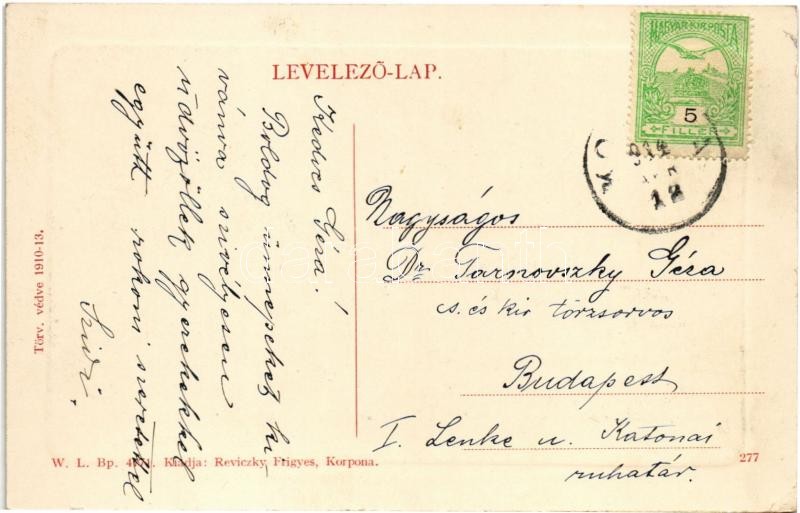 LEVELEZŐ-LAP.
MAGYAR KIR. POSTA
5
FILLÉR
914
12
Kedves Géza!
Boldog ünnepeket ki-
vánva szivélyesen
üdvözöllek gyerekekkel
együtt rokoni szeretettel
Szidi.
Nagyságos
Dr. Tarnovszky Géza
cs. és kir törzsorvos
Budapest
I. Lenke u. Katonai
ruhatár.
Törv. védve 1910-13.
W. L. Bp. Kiadja: Reviczky Frigyes, Korpona.
277